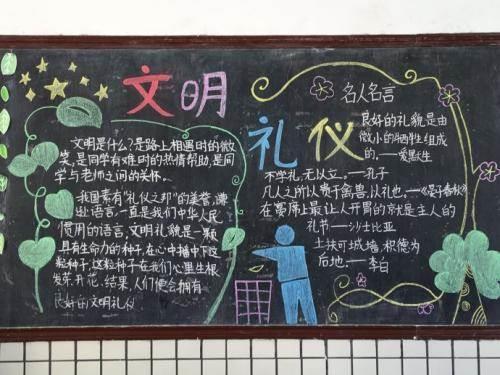 文明
文明是什么?是路上相遇时的微
笑,是同学有难时的热情帮助,是同
学与老师之间的关怀。
我国素有"礼仪之邦"的美誉,谦
逊语言,一直是我们中华人民
惯用的语言,文明礼貌是一颗
具有生命力的种子,在心中播中下这
粒种子,这粒种子在我们心里生根
发芽、开花、结果,人们便会拥有
良好的文明礼仪
礼仪
名人名言
良好的礼貌是由
微小的牺牲组成
的.——爱默生
不学礼,无以立。——孔子
凡人之所以贵于禽兽,以礼也。——《晏子春秋》
在宴席上最让人开胃的就是主人的
礼节——沙士比亚
土扶可城墙,积德为
厚地.——李白